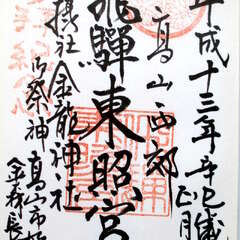 平成十三年辛巳歳正月
高山西郊
飛驒東照宮
摂社金龍神社
御祭神高山市
金森長